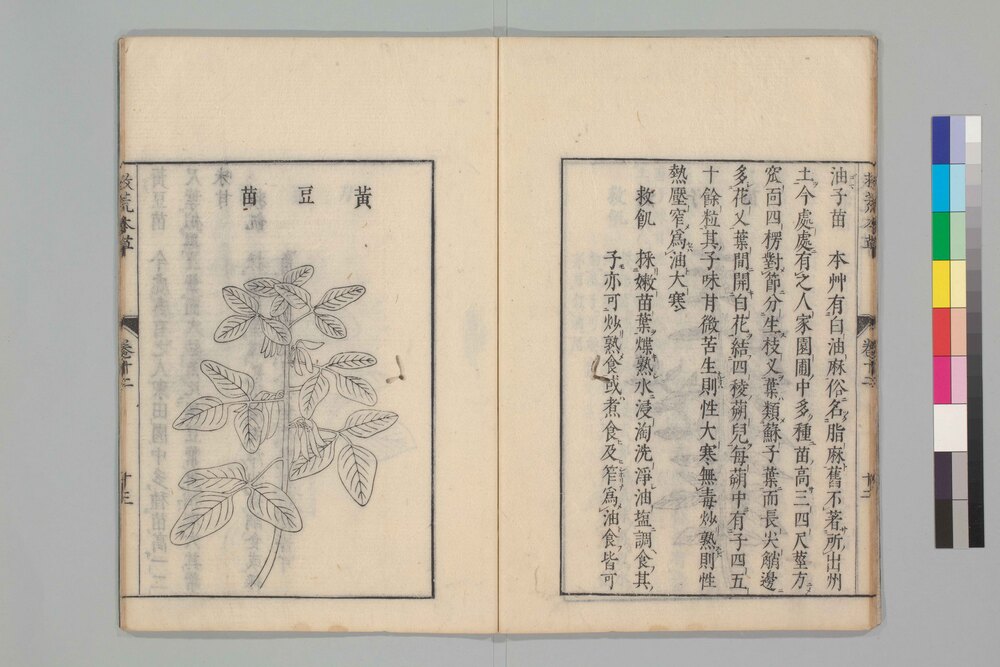 油子苗　本艸有白油麻俗名脂麻舊不著所出州
土今處處有之人家園圃中多種苗高三四尺莖方
窊面四楞對節分生枝叉葉類蘇子葉而長尖䏴邊
多花叉葉間開白花結四稜蒴兒每蒴中有子四五
十餘粒其子味甘微苦生則性大寒無毒炒熟則性
熱壓窄爲油大寒
救飢　採嫩苗葉煠熟水浸淘洗淨油塩調食其
子亦可炒熟食或煮食及笮爲油食皆可
黃豆苗
救荒本草
卷廿二
十三